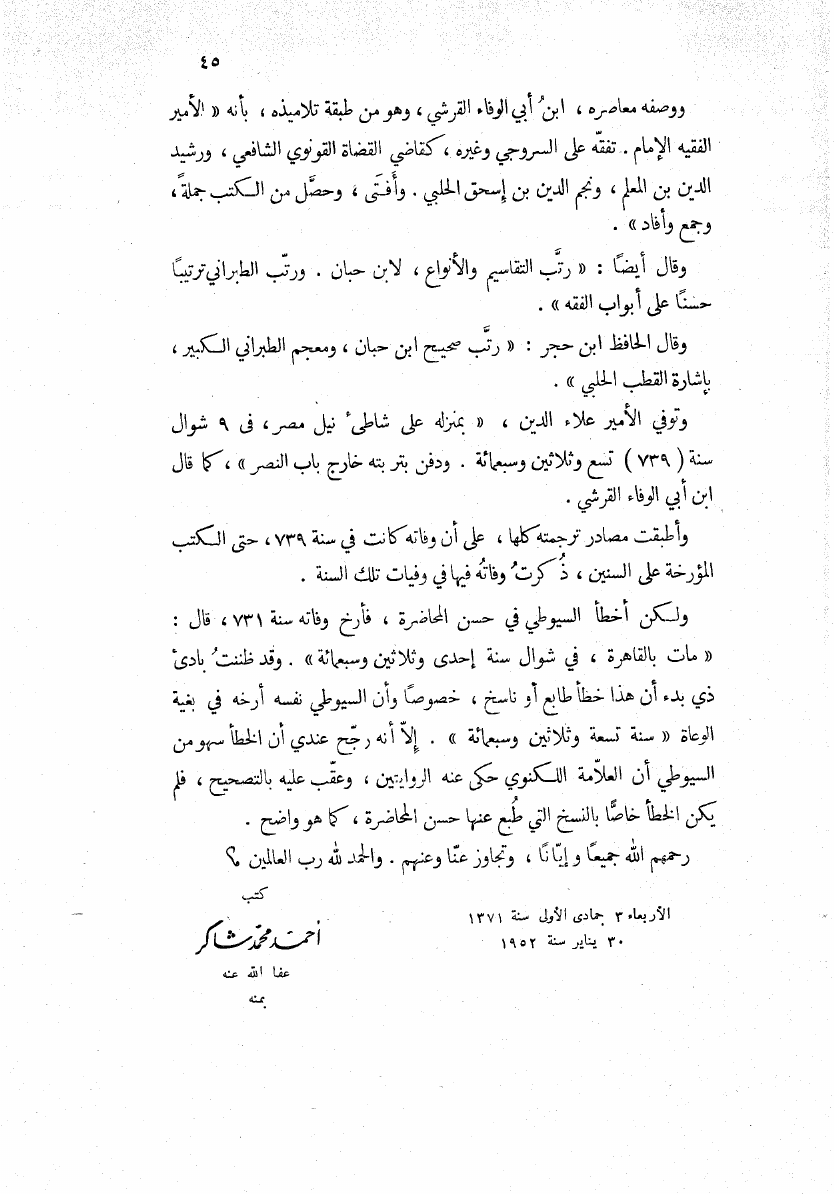 ٤٥
ووصفه معاصره ، ابنُ أبي الوفاء القرشي ، وهو من طبقة تلاميذه ، بأنه « الأمير
الفقيه الإمام . تفقّه على السروجي وغيره ، كقاضي القضاة القونوي الشافعي ، ورشيد
الدين بن المعلم ، ونجم الدين بن إسحق الحلبي . وأَفتَى ، وحصَّل من الكتب جملةً ،
وجمع وأفاد » .
وقال أيضًا : « رتَّب التقاسيم والأنواع ، لابن حبان . ورتّب الطبراني ترتيبًا
حسنًا على أبواب الفقه » .
وقال الحافظ ابن حجر : « رتَّب صحيح ابن حبان ، ومعجم الطبراني الكبير ،
بإشارة القطب الحلبي » .
وتوفي الأمير علاء الدين ، « بمنزله على شاطئ نيل مصر ، فى ٩ شوال
سنة ( ٧٣٩ ) تسع وثلاثين وسبعمائة . ودفن بتربته خارج باب النصر » ، كما قال
ابن أبي الوفاء القرشي .
وأطبقت مصادر ترجمته كلها ، على أن وفاته كانت في سنة ٧٣٩ ، حتى الكتب
المؤرخة على السنين ، ذُكرتْ وفاتُه فيها في وفيات تلك السنة .
ولكن أخطأ السيوطي في حسن المحاضرة ، فأرخ وفاته سنة ٧٣١ ، قال :
« مات بالقاهرة ، في شوال سنة إحدى وثلاثين وسبعمائة » . وقد ظننتُ بادئ
ذي بدء أن هذا خطأ طابع أو ناسخ ، خصوصًا وأن السيوطي نفسه أرخه في بغية
الوعاة « سنة تسعة وثلاثين وسبعمائة » . إلاّ أنه رجّح عندي أن الخطأ سهو من
السيوطي أن العلاّمة اللكنوي حكى عنه الروايتين ، وعقّب عليه بالتصحيح ، فلم
يكن الخطأ خاصًّا بالنسخ التي طُبع عنها حسن المحاضرة ، كما هو واضح .
رحمهم الله جميعًا وإيّانا ، وتجاوز عنّا وعنهم . والحمد لله رب العالمين ؟
كتب
الأربعاء ٣ جمادى الأولى سنة ١٣٧١
أحمد محمد شاكر
٣٠ يناير سنة ١٩٥٢
عفا الله عنه
بمنه